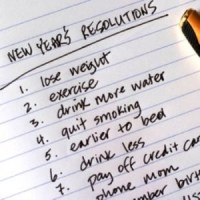 NEW YEAR'S RESOLUTIONS
1. lose weight
2. exercise
3. drink more water
4. quit smoking
5. earlier to bed
6. drink less
7. pay off credit
phone mom
birth